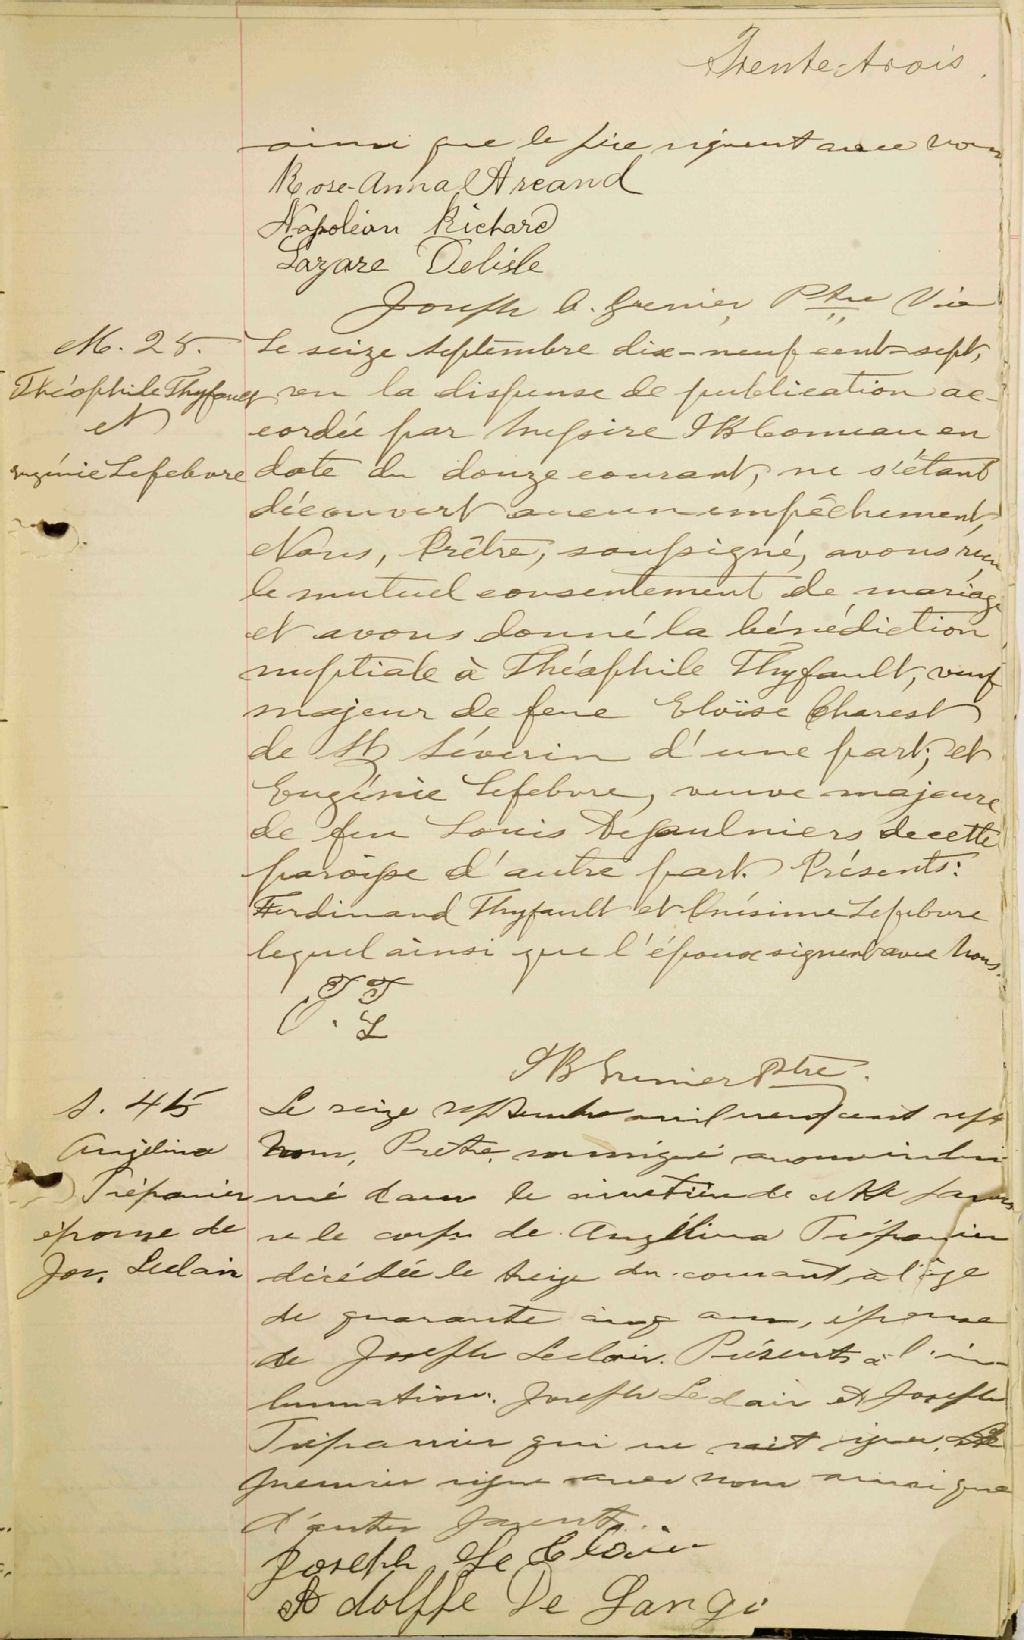 Trente-trois.
ainsi que le père signent avec nous
Rose-Anna Arcand
Napoléon Richard
Lazare Delisle
Joseph A. Grenier Ptre Vic
M. 28.
Théophile Thyfault
et
Eugénie Lefebvre
Le seize septembre dix-neuf cent-sept,
vu la dispense de publication ac-
cordée par Messire JB Comeau en
date du douze courant, ne s'étant
découvert aucun empêchement,
Nous, Prêtre, soussigné, avons reçu
le mutuel consentement de mariage
et avons donné la bénédiction
nuptiale à Théophile Thyfault, veuf
majeur de feue Eloïse Charest
de St Séverin d'une part; et
Eugénie Lefebvre, veuve majeure
de feu Louis Desaulniers de cette
paroisse d'autre part. Présents:
Ferdinand Thyfault et Onésime Lefebvre
lequel ainsi que l'époux signent avec Nous.
T T
O. L
JB Grenier Ptre.
S. 45
Angélina
Trépanier
épouse de
Jos. Leclair
Le seize septembre mil neuf cent sept
Nous, Prêtre, soussigné avons inhu
mé dans le cimetière de cette parois
se le corps de Angélina Trépanier
décédée le treize du courant, à l'âge
de quarante cinq ans, épouse
de Joseph Leclair. Présents à l'in
humation: Joseph Leclair et Joseph
Trépanier qui ne sait signer. Le
premier signe avec nous ainsi que
d'autres parents.
Joseph Le Clair
Adolffe De Langi